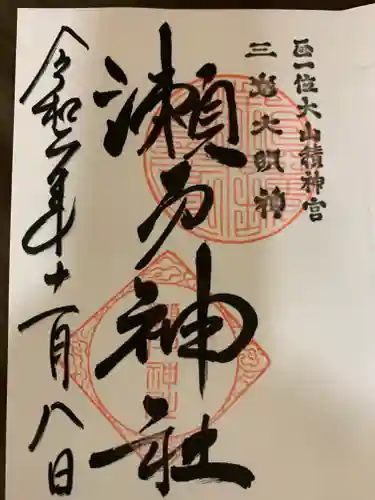 正一位大山積神宮
三島大明神
瀬戸神社
令和六年十一月八日